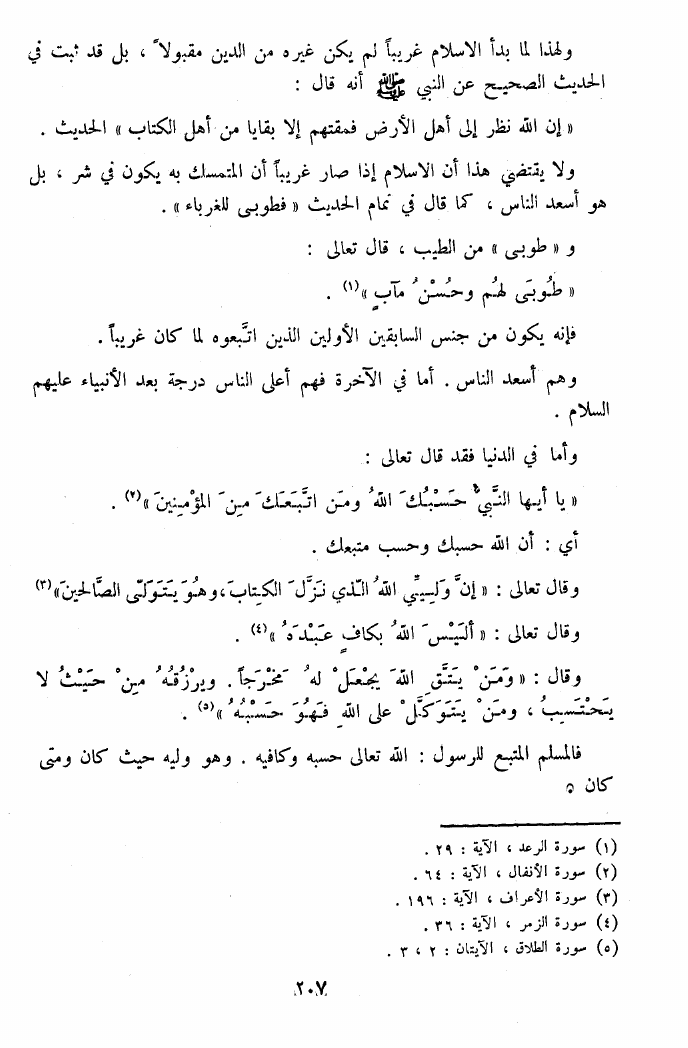 ولهذا لما بدأ الاسلام غريباً لم يكن غيره من الدين مقبولاً ، بل قد ثبت في
الحديث الصحيح عن النبي ﷺ أنه قال :
« إن الله نظر إلى أهل الأرض فمقتهم إلا بقايا من أهل الكتاب » الحديث .
ولا يقتضي هذا أن الاسلام إذا صار غريباً أن المتمسك به يكون في شر ، بل
هو أسعد الناس ، كما قال في تمام الحديث « فطوبى للغرباء » .
و « طوبى » من الطيب ، قال تعالى :
« طُوبَى لهُم وحُسْنُ مآبٍ »(١) .
فإنه يكون من جنس السابقين الأولين الذين اتَّبعوه لما كان غريباً .
وهم أسعد الناس . أما في الآخرة فهم أعلى الناس درجة بعد الأنبياء عليهم
السلام .
وأما في الدنيا فقد قال تعالى :
« يا أيها النَّبيُّ حَسْبُكَ اللهُ ومَن اتَّبَعَكَ مِنَ المؤْمِنينَ »(٢) .
أي : أن الله حسبك وحسب متبعك .
وقال تعالى : « إنَّ وَلِيِّيَ اللهُ الَّذي نَزَّلَ الكِتابَ، وهُوَ يَتَوَلّى الصَّالحينَ »(٣)
وقال تعالى : « ألَيْسَ اللهُ بكافٍ عَبْدَهُ »(٤) .
وقال : « وَمَنْ يَتَّقِ اللهَ يجْعَلْ لهُ مَخْرَجاً . ويرْزُقْهُ مِنْ حَيْثُ لا
يَحْتَسِبُ ، ومَنْ يَتَوَكَّلْ على اللهِ فَهُوَ حَسْبُهُ »(٥) .
فالمسلم المتبع للرسول : الله تعالى حسبه وكافيه . وهو وليه حيث كان ومتى
كان ٥
(١) سورة الرعد ، الآية : ٢٩ .
(٢) سورة الأنفال ، الآية : ٦٤ .
(٣) سورة الأعراف ، الآية : ١٩٦ .
(٤) سورة الزمر ، الآية : ٣٦ .
(٥) سورة الطلاق ، الآيتان : ٢ ، ٣ .
٢٠٧